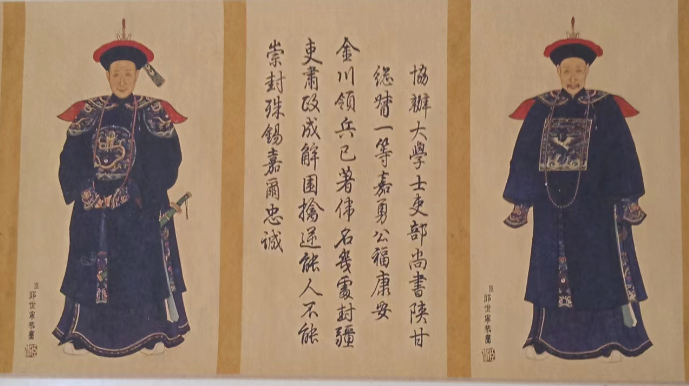 臣郎世寧恭畫
協辦大學士吏部尚書陝甘
總督一等嘉勇公福康安
金川領兵已著偉名幾處封疆
吏肅政成解圍擒逆能人不能
崇封殊錫嘉爾忠誠
臣郎世寧恭畫